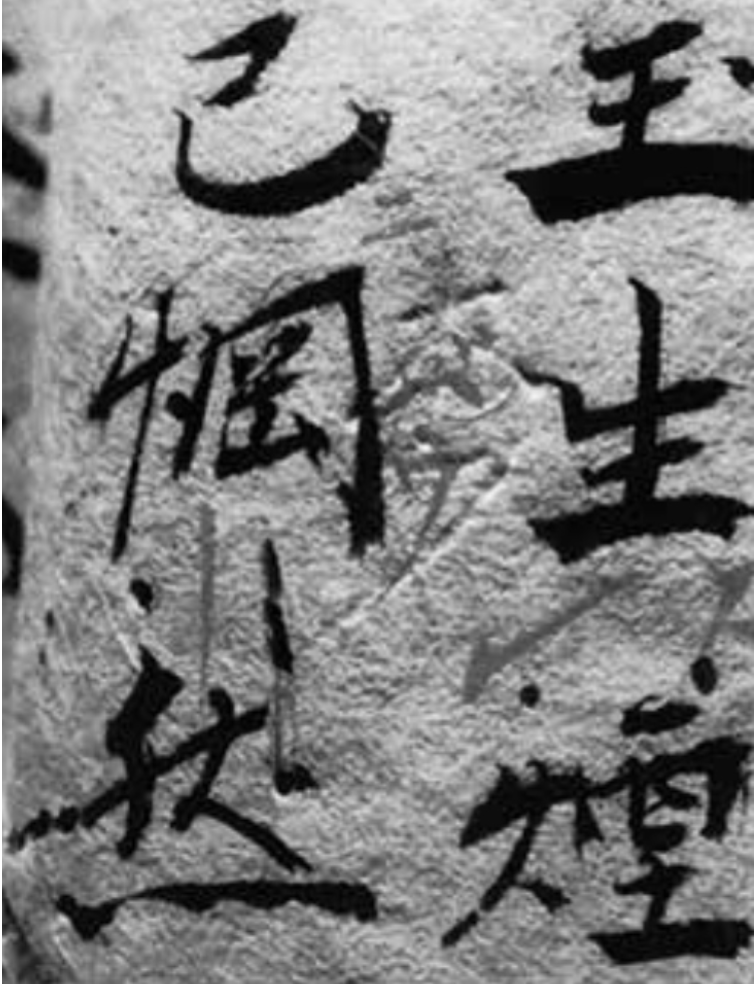 玉生煙
已惘然